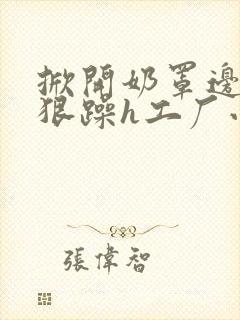 掀開奶罩邊
狠躁h工厂
張偉智